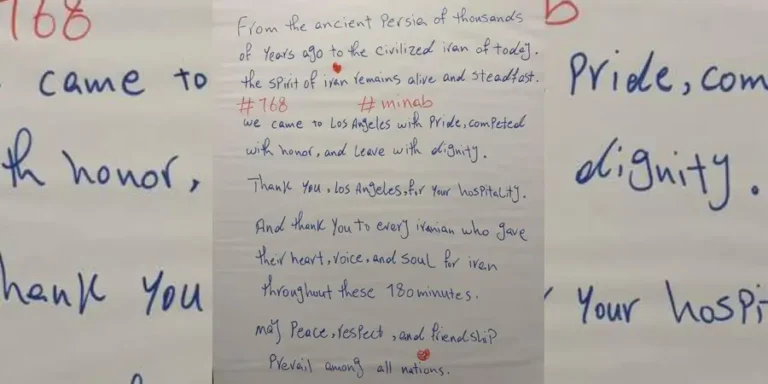 From the ancient Persia of thousands
of years ago to the civilized iran of today.
the spirit of iran remains alive and steadfast.
#768 #minab
we came to Los Angeles with Pride, competed
with honor, and Leave with dignity.
Thank you, Los Angeles, for your hospitality.
And thank you to every iranian who gave
their heart, voice, and soul for iran
throughout these 180 minutes.
may Peace, respect, and friendship
Prevail among all nations.
768
came to
th honor,
hank you
b
Pride, com
dignity.
your hospi